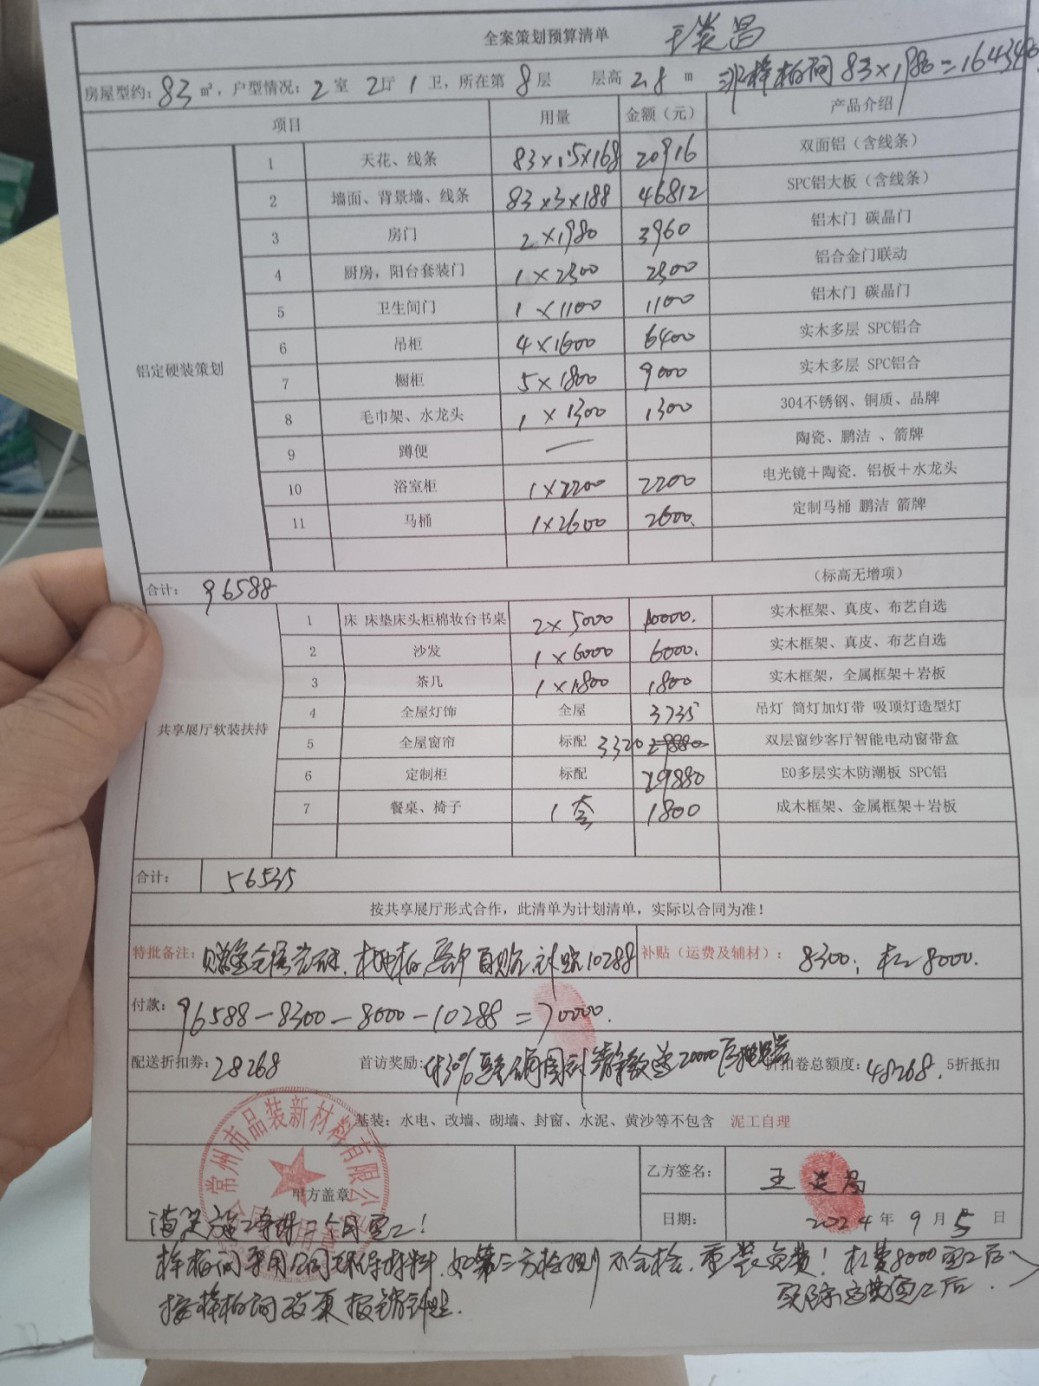 全案策划预算清单
房屋型约：83 m²，户型情况：2室 2厅 1卫，所在第8层 层高2.8 m 非样板间 83×1980=164340
项目 用量 金额（元） 产品介绍
铝定硬装策划
1 天花、线条 83×1.5×168 20916 双面铝（含线条）
2 墙面、背景墙、线条 83×3×188 46812 SPC铝大板（含线条）
3 房门 2×1980 3960 铝木门 碳晶门
4 厨房，阳台套装门 1×2300 2300 铝合金门联动
5 卫生间门 1×1100 1100 铝木门 碳晶门
6 吊柜 4×1600 6400 实木多层 SPC铝合
7 橱柜 5×1800 9000 实木多层 SPC铝合
8 毛巾架、水龙头 1×1300 1300 304不锈钢、铜质、品牌
9 蹲便 — 陶瓷、鹏洁 、箭牌
10 浴室柜 1×2200 2200 电光镜＋陶瓷．铝板＋水龙头
11 马桶 1×2600 2600. 定制马桶 鹏洁 箭牌
合计： 96588 （标高无增项）
共享展厅软装扶持
1 床 床垫床头柜棉妆台书桌 2×5000 10000. 实木框架、真皮、布艺自选
2 沙发 1×6000 6000. 实木框架、真皮、布艺自选
3 茶几 1×1800 1800 实木框架，全属框架＋岩板
4 全屋灯饰 全屋 3735 吊灯 筒灯加灯带 吸顶灯造型灯
5 全屋窗帘 标配 3320 29880 双层窗纱客厅智能电动窗帘盒
6 定制柜 标配 29880 E0多层实木防潮板 SPC铝
7 餐桌、椅子 1套 1800 成木框架、金属框架＋岩板
合计： 56535
按共享展厅形式合作，此清单为计划清单，实际以合同为准！
特批备注： 补贴 10288 补贴（运费及辅材）： 8300； 8000.
付款： 96588－8300－8000－10288＝70000.
配送折扣券：28268 首访奖励： 20000 折扣卷总额度：48268. 5折抵扣
基装：水电、改墙、砌墙、封窗、水泥、黄沙等不包含 泥工自理
常州市品装新材料有限公司
甲方盖章
乙方签名：
日期： 2024年9月5日
样板间专用合同环保材料，如第三方检测不合格，重装免费！ 8000完工后